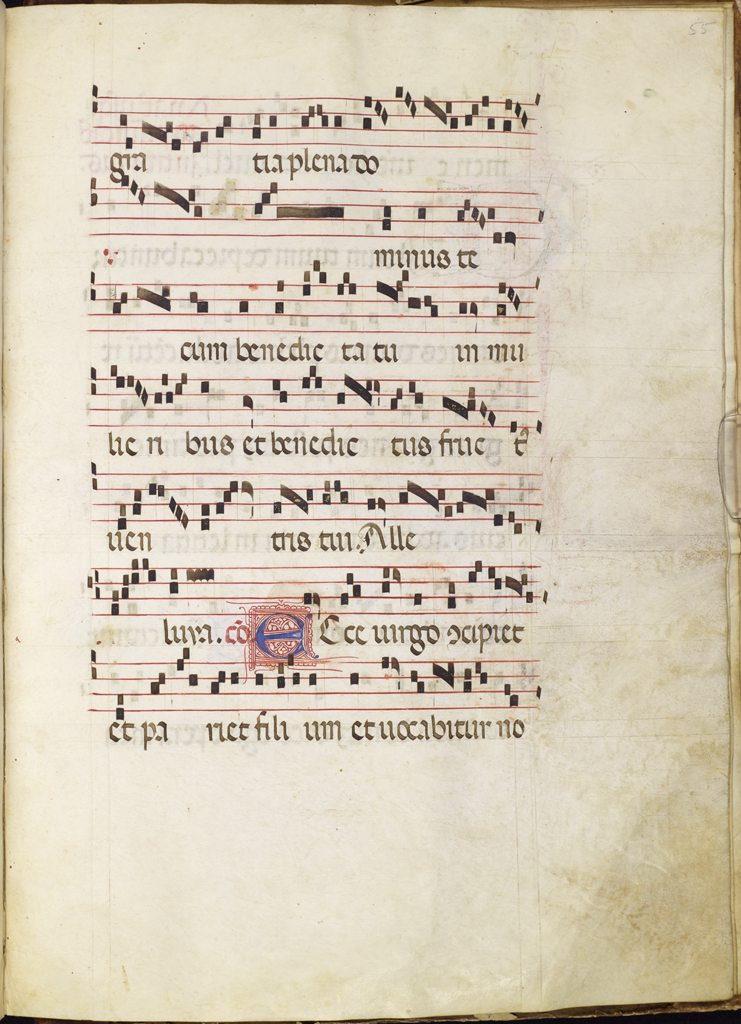 55
gra tia plena do
minus te
cum benedic ta tu in mu
lie ri bus et benedic tus fruc t᷒
uen tris tui. Alle
luya. cō E Ecce uirgo ꝯcipiet
et pa riet fili um et uocabitur no